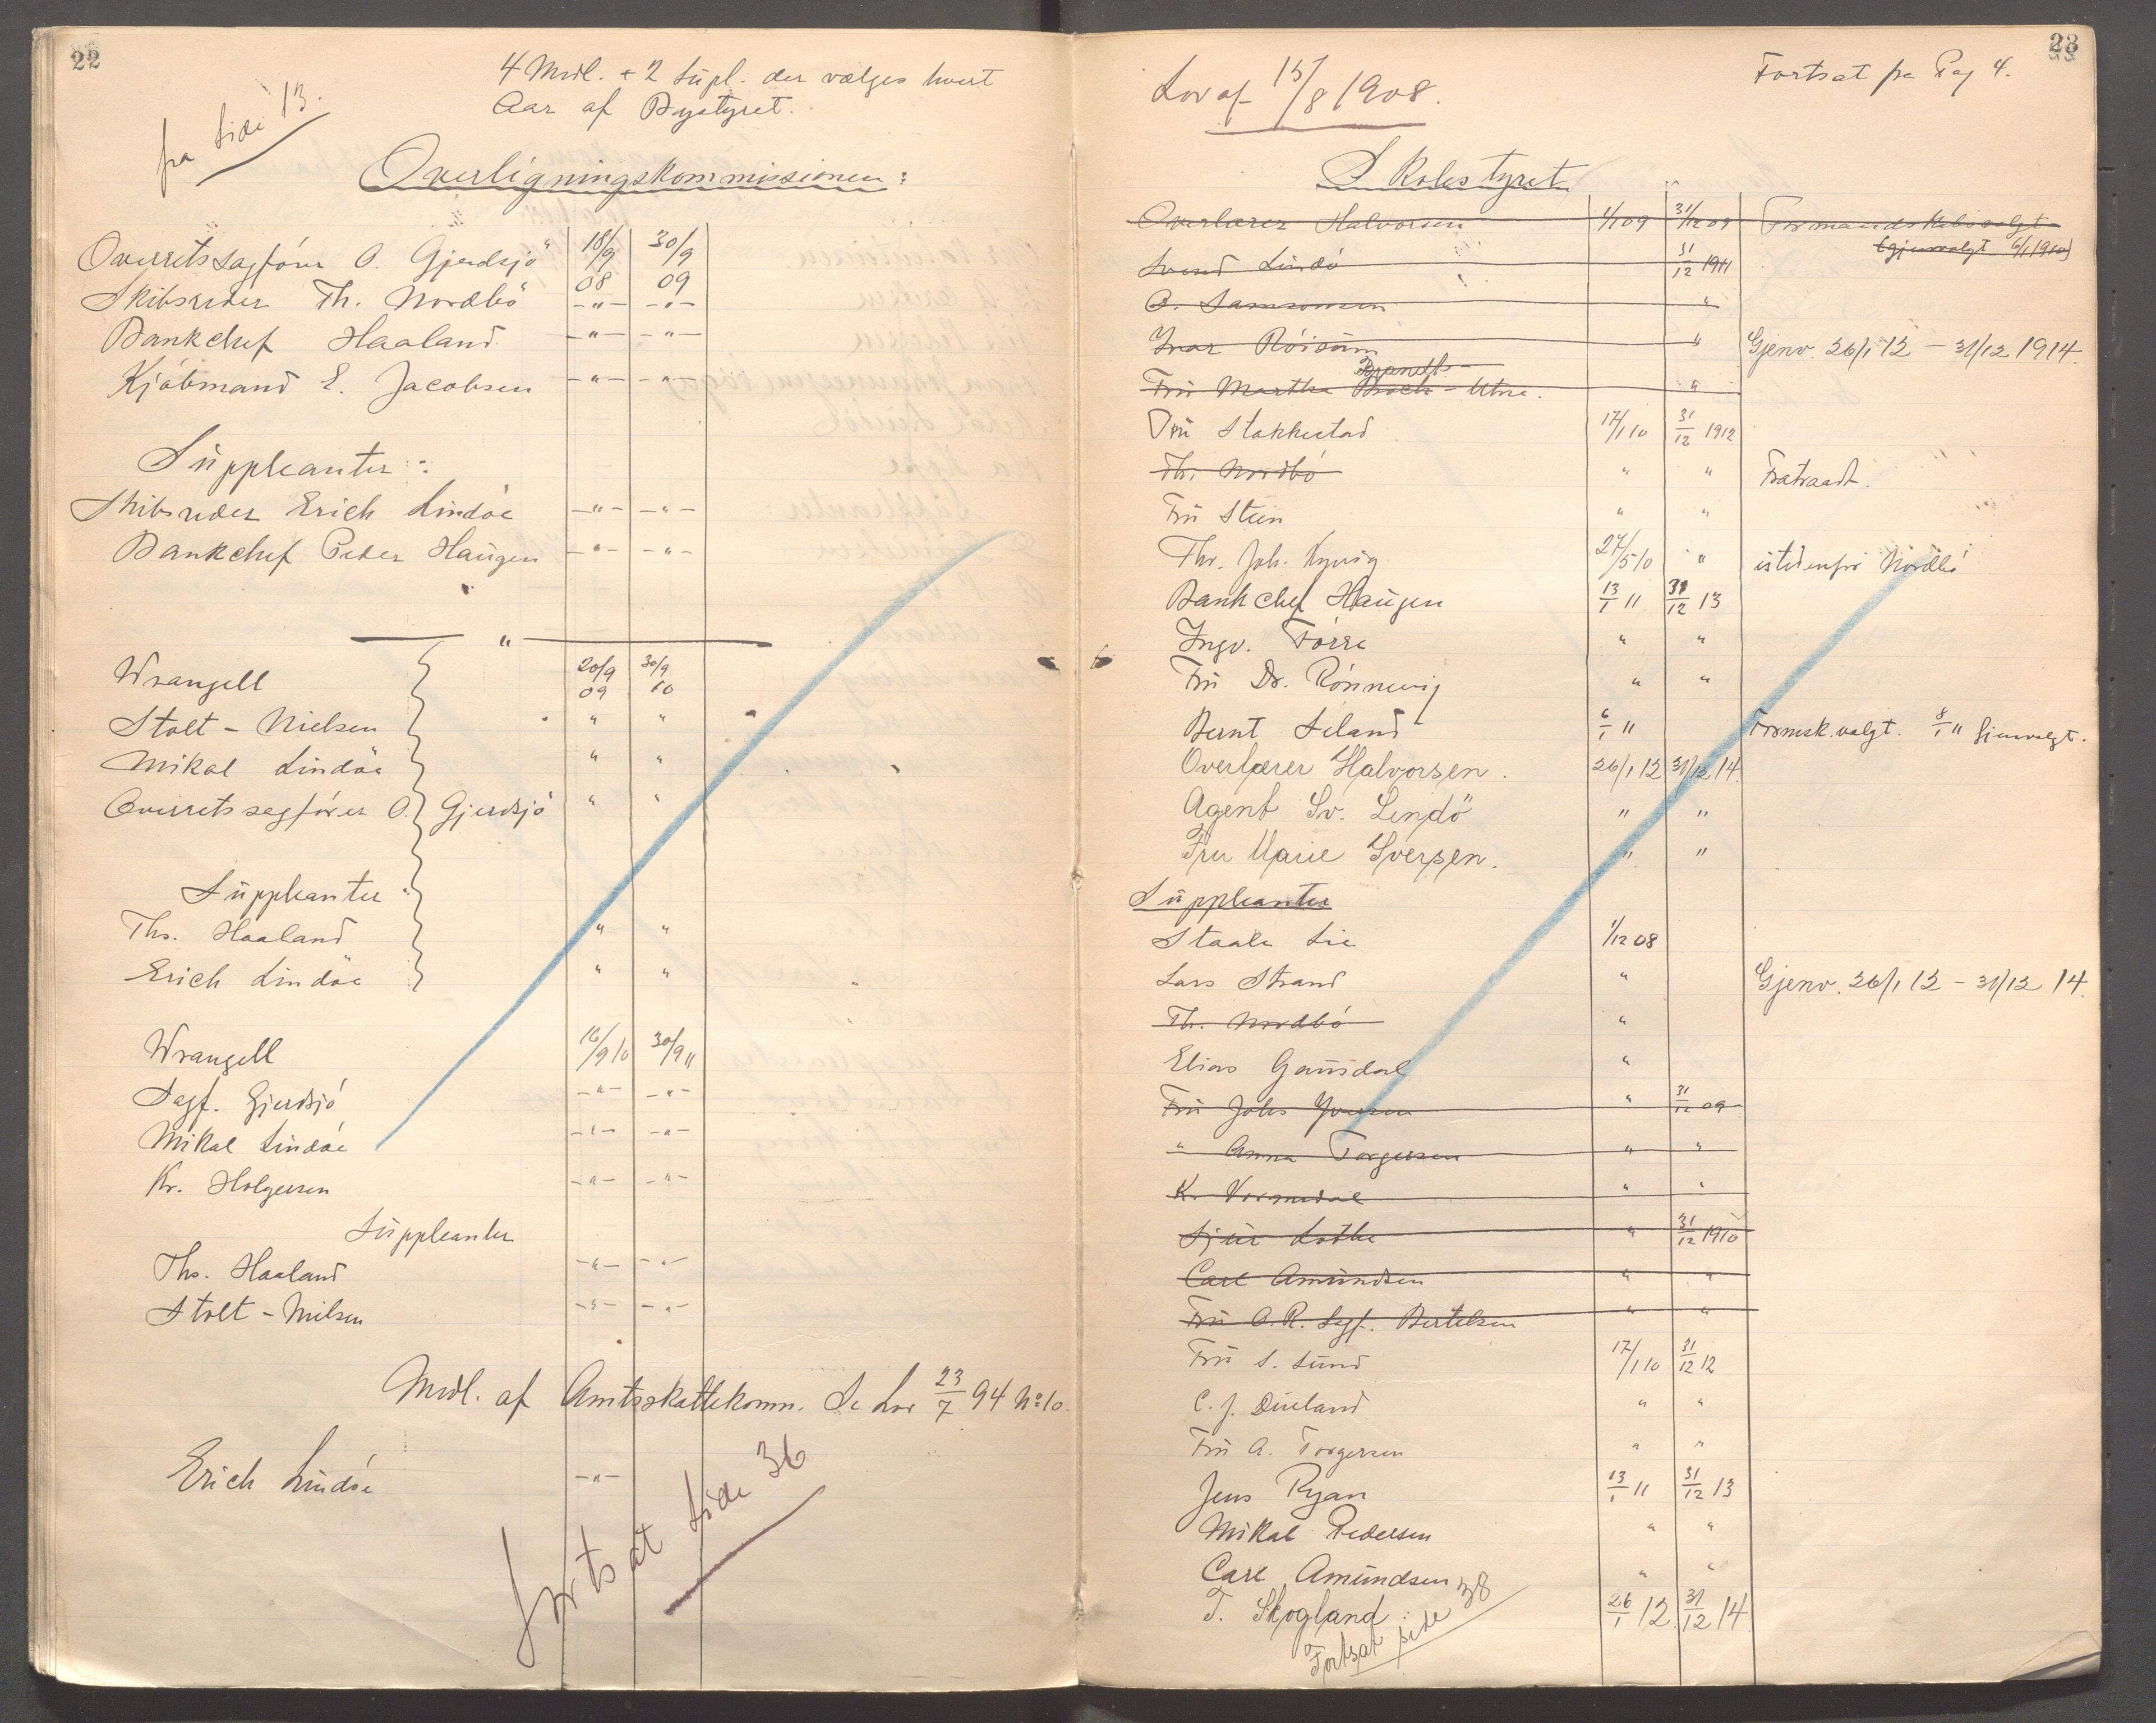 22
fra Side 13.
4 Medl. + 2 Supl. der vælges hvert
Aar af Bystyret.
Overligningskommissionen:
Overretssagfører O. Gjerdsjö 18/9 08 30/9 09
Skibsreder Th. Nordbö -"- -"-
Bankchef Haaland -"- -"-
Kjöbmand E. Jacobsen -"- -"-
Suppleanter:
Skibsreder Erich Lindöe -"- -"-
Bankchef Peder Haugen -"- -"-
"
Wrangell 20/9 09 30/9 10
Stolt-Nielsen " "
Mikal Lindöe " "
Overretssagförer O. Gjerdsjö " "
Suppleanter
Ths. Haaland " "
Erich Lindöe " "
Wrangell 16/9 10 30/9 11
Sagf. Gjerdsjö -"- -"-
Mikal Lindöe -"- -"-
Kr. Holgersen -"- -"-
Suppleanter
Ths. Haaland -"- -"-
Stolt-Nielsen -"- -"-
Medl. af Amtsskattekomm. Se Lov 23/7 94 No 10.
Erich Lindöe -"-
fortsat Side 36
23
Lov af 15/8 1908.
Fortsat fra Pag 4.
Skolestyret
Overlærer Halvorsen 1/1 09 31/12 09 Formandskabsvalgt
(gjenvalgt 6/1 1910)
Svend Lindö 31/12 1911
O. Samsonsen "
Ivar Röisum " Gjenv. 26/1 12 - 31/12 1914
Brandt-
Fru Martha Broch-Utne. "
Fru Stakkestad 17/1 10 31/12 1912
Th. Nordbö " " Fratraadt.
Fru Steen " "
Thv. Joh. Kyvig 27/5 10 " istedenfor Nordbö
Bankchef Haugen 13/1 11 31/12 13
Ingv. Törre " "
Fru Dr. Rönnevig " "
Bernt Seland 6/1 11 Formsk.valgt. 8/1 11 Gjenvalgt.
Overlærer Halvorsen. 26/1 12 31/12 14.
Agent Sv. Lindö " "
Fru Marie Iversen. " "
Suppleanter
Staale Lie 1/12 08
Lars Strand " Gjenv. 26/1 12 - 31/12 14.
Th. Nordbö "
Elias Gausdal "
Fru Johs Iversen " 31/12 09
" Anna Torgersen " "
K. Vormedal " "
Sjur Lothe " 31/12 1910
Carl Amundsen " "
Fru O.R. Sagf. Bertelsen " "
Fru S. Sund 17/1 10 31/12 12
C. J. Dueland " "
Fru A. Torgersen " "
Jens Ryan 13/1 11 31/12 13
Mikal Pedersen " "
Carl Amundsen " "
T. Skogland. 26/1 12 31/12 14
Fortsat side 38